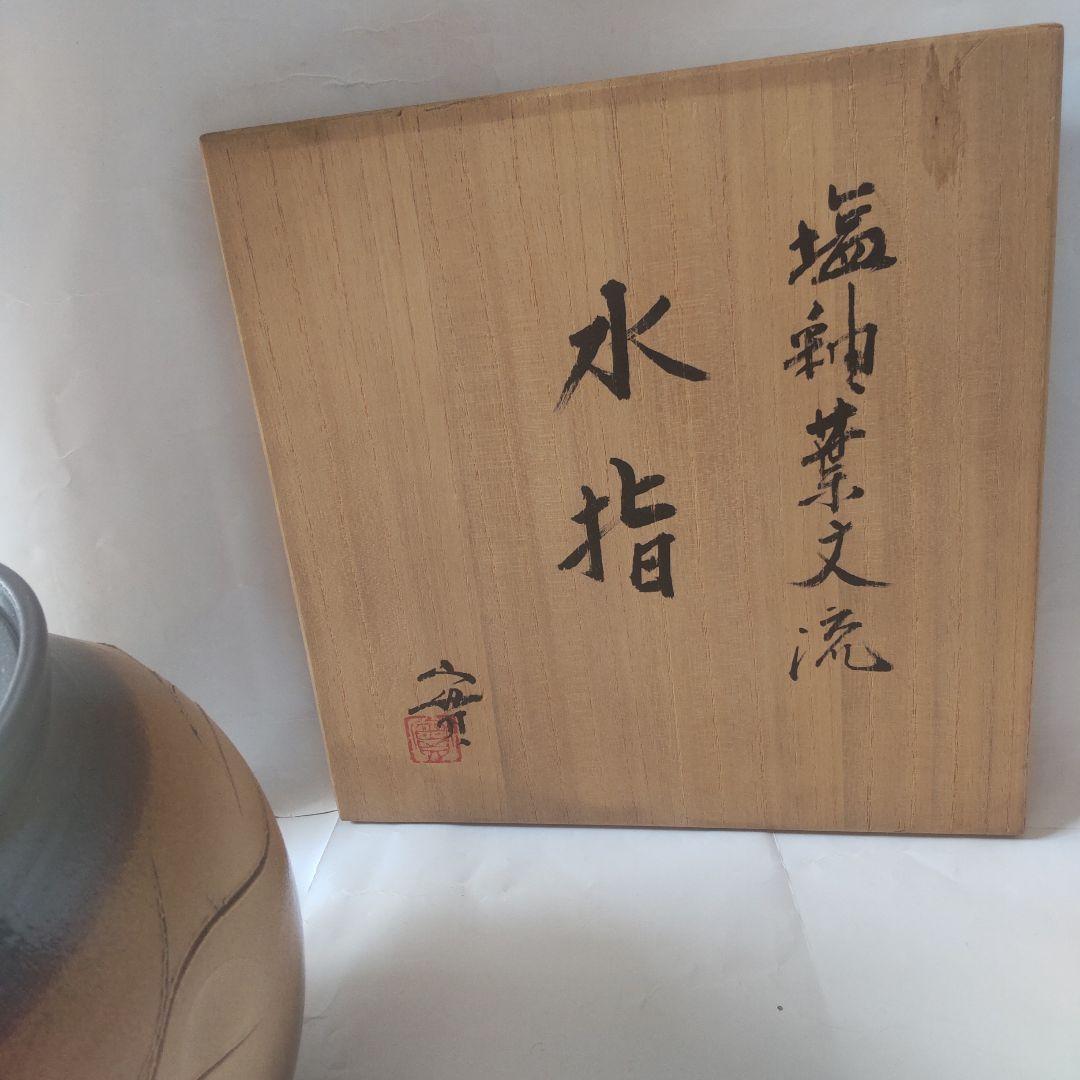 塩釉葉文流
水指